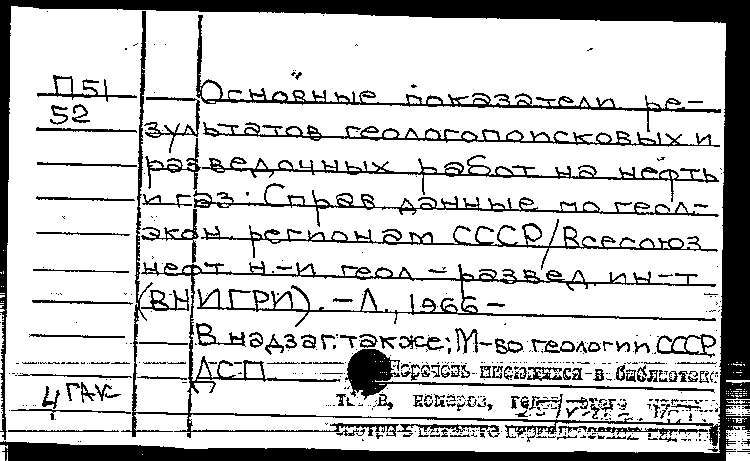 П51
52
Основные показатели ре-
зультатов геологопоисковых и
разведочных работ на нефть
и газ. Справ данные по геол.-
экон регионам СССР/Всесоюз
нефт н.-и геол-развед ин-т
(ВНИГРИ). - Л., 1966-
В надзаг. также: М-во геологии СССР
ДСП
Перечень имеющихся в библиотеке
в, номеров,
смотри в каталоге